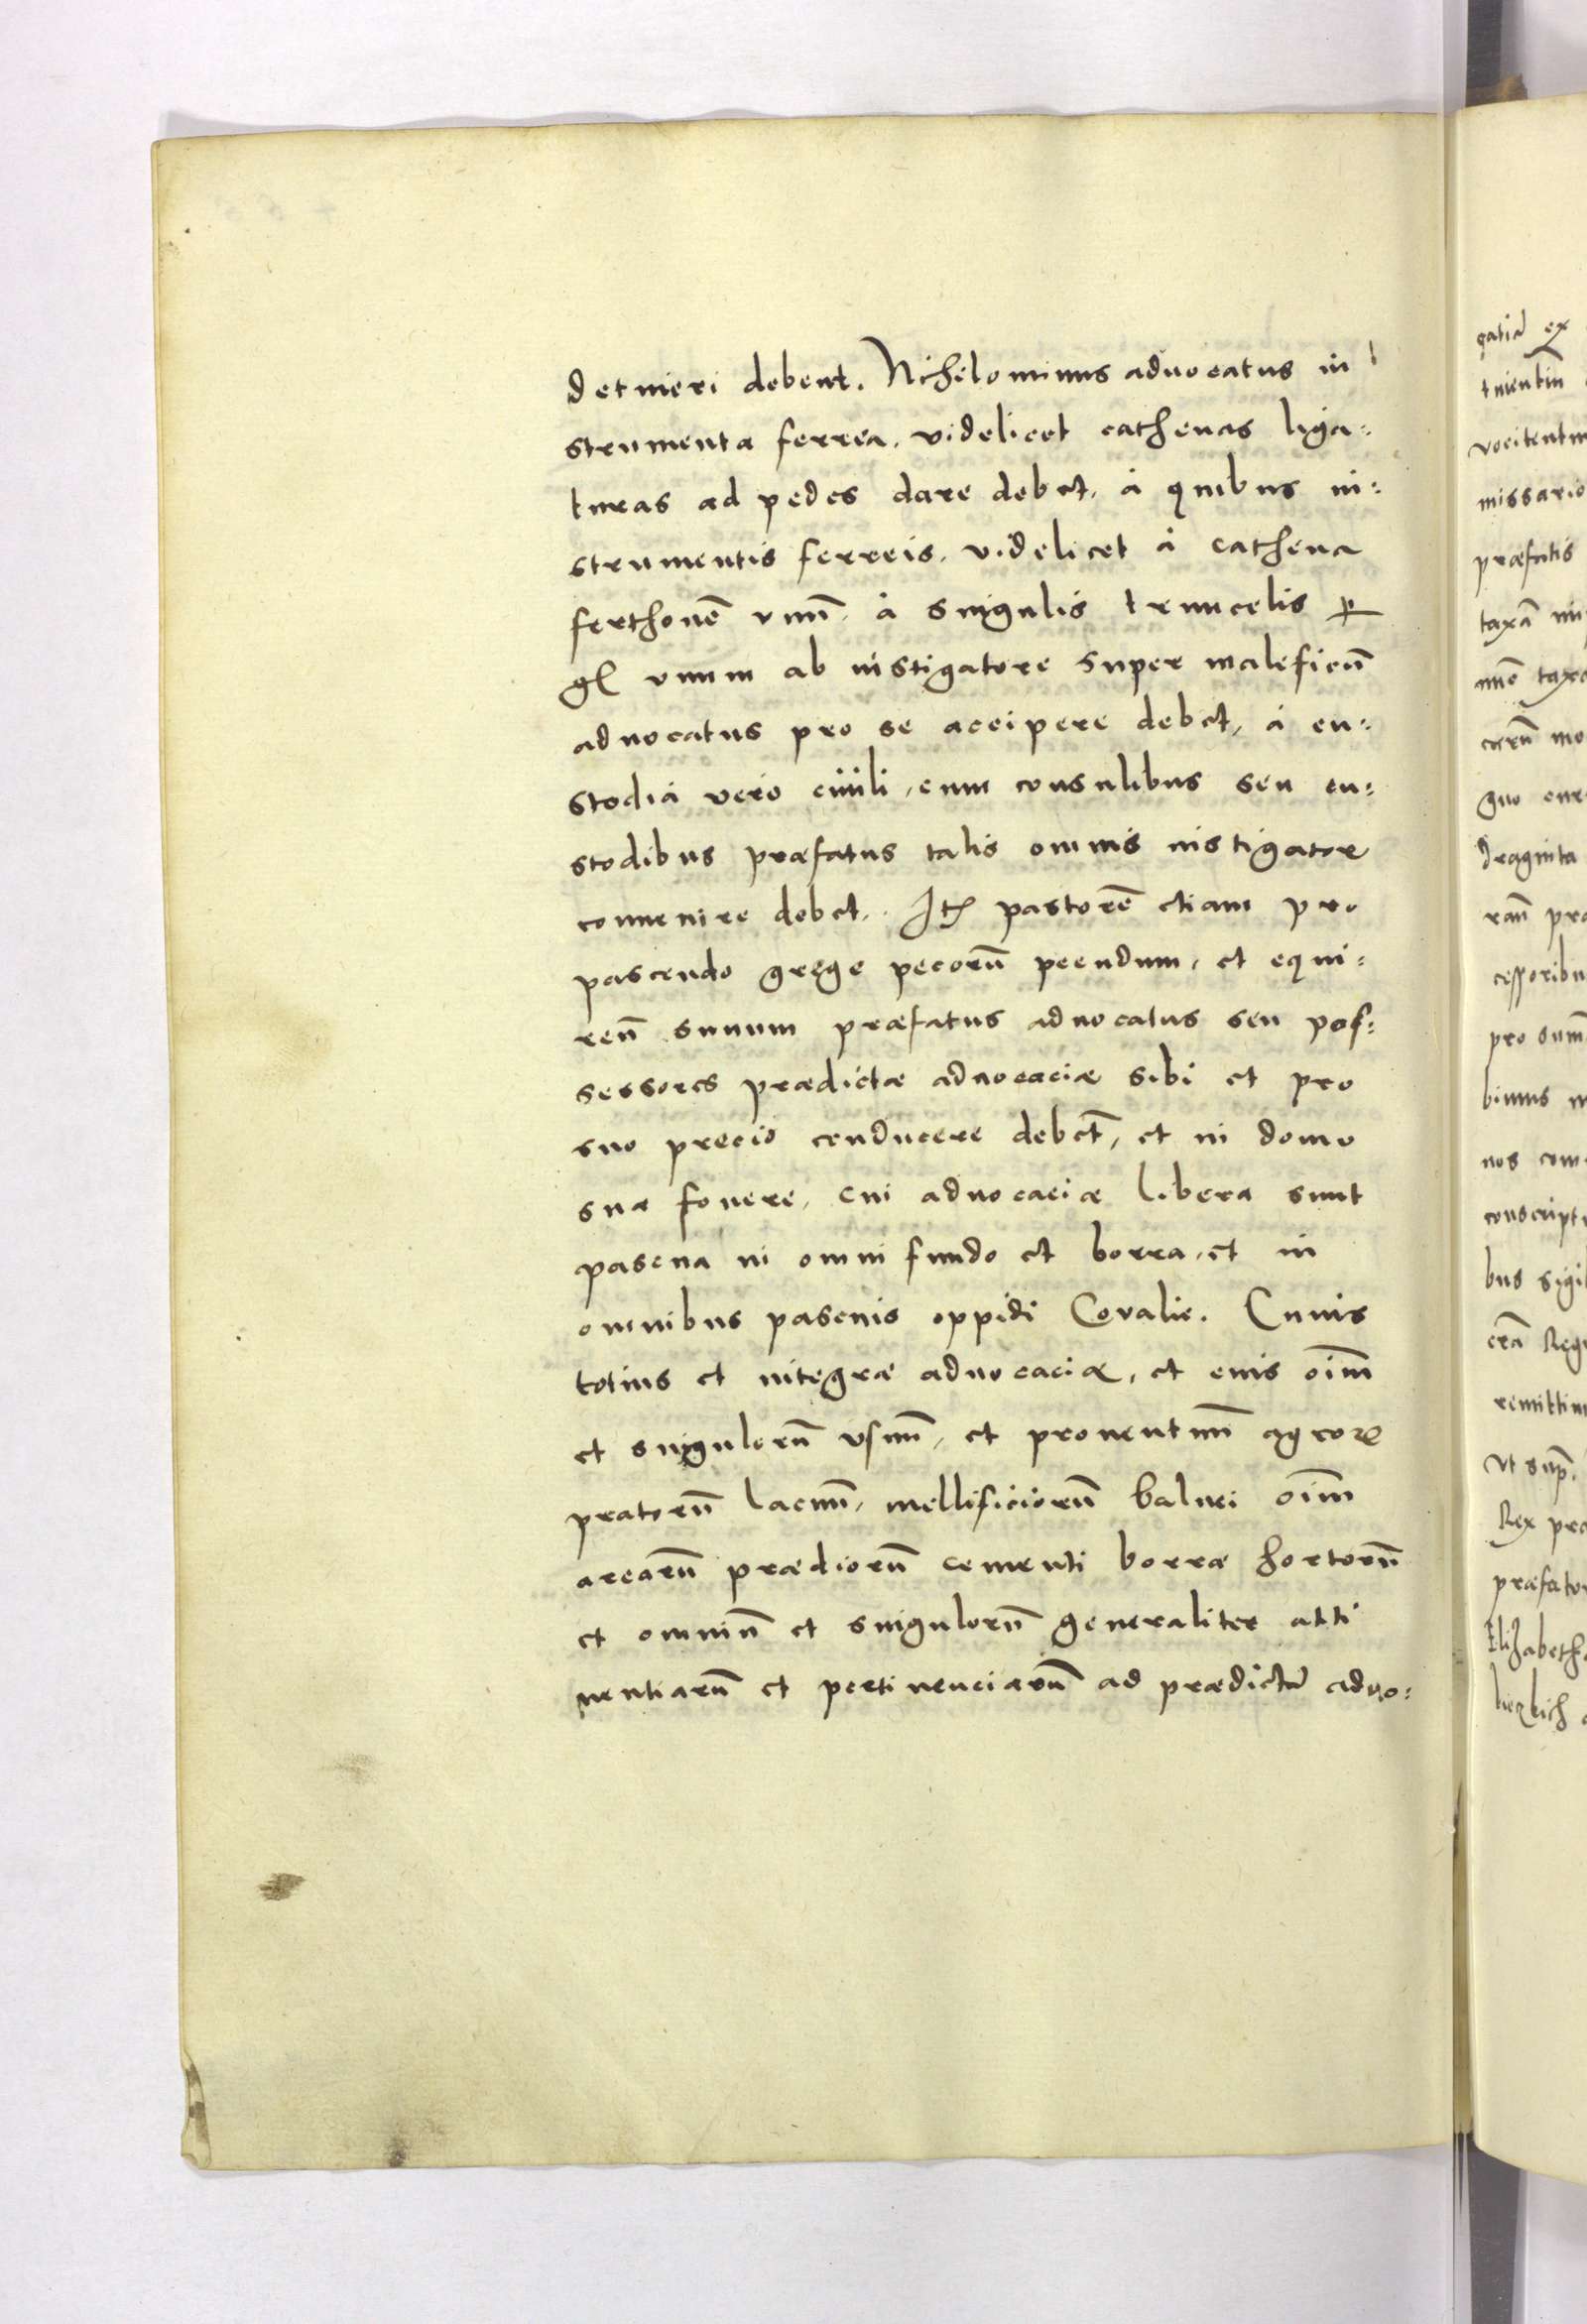 detineri debent. Nichilominus advocatus in
strumenta ferrea, videlicet cathenas liga:
turas ad pedes dare debet, à quibus in:
strumentis ferreis, videlicet à cathena
ferthonē unū, à singulis truncelis
unum ab instigatore super maleficū
advocatus pro se accipere debet, à cu:
stodia vero civili, cum consulibus seu cu:
stodibus præfatus talis omnis instigator
convenire debet. Itē pastorē etiam pro
pascendo grege pecorū pecudum, et equi:
reū suuum præfatus advocatus seu pos:
sessores prædictæ advocaciæ sibi et pro
suo precio conducere debēt, et in domo
sua fovere, cui advocaciæ libera sunt
pascua in omni fundo et borra, et in
omnibus pascuis oppidi Covalie. Cuius
totius et integræ advocaciæ, et eius oīm
et singulorū usuū, et proventuū agrorꝝ
pratorū lacuū, mellificiorū balnei oīm
arearū prædiorū cementi borræ hortorū
et omniū et singulorū generaliter atti
nentiarū et pertinenciarū ad prædictā advo:
gatiā ex
vocitent
missario
præfatis
taxā
quo
draginta
cessoribu
pro
nos com
conscript
bus sigil
Reg
remittim
ut sup.
Rex præ
præfato
Elizabeth